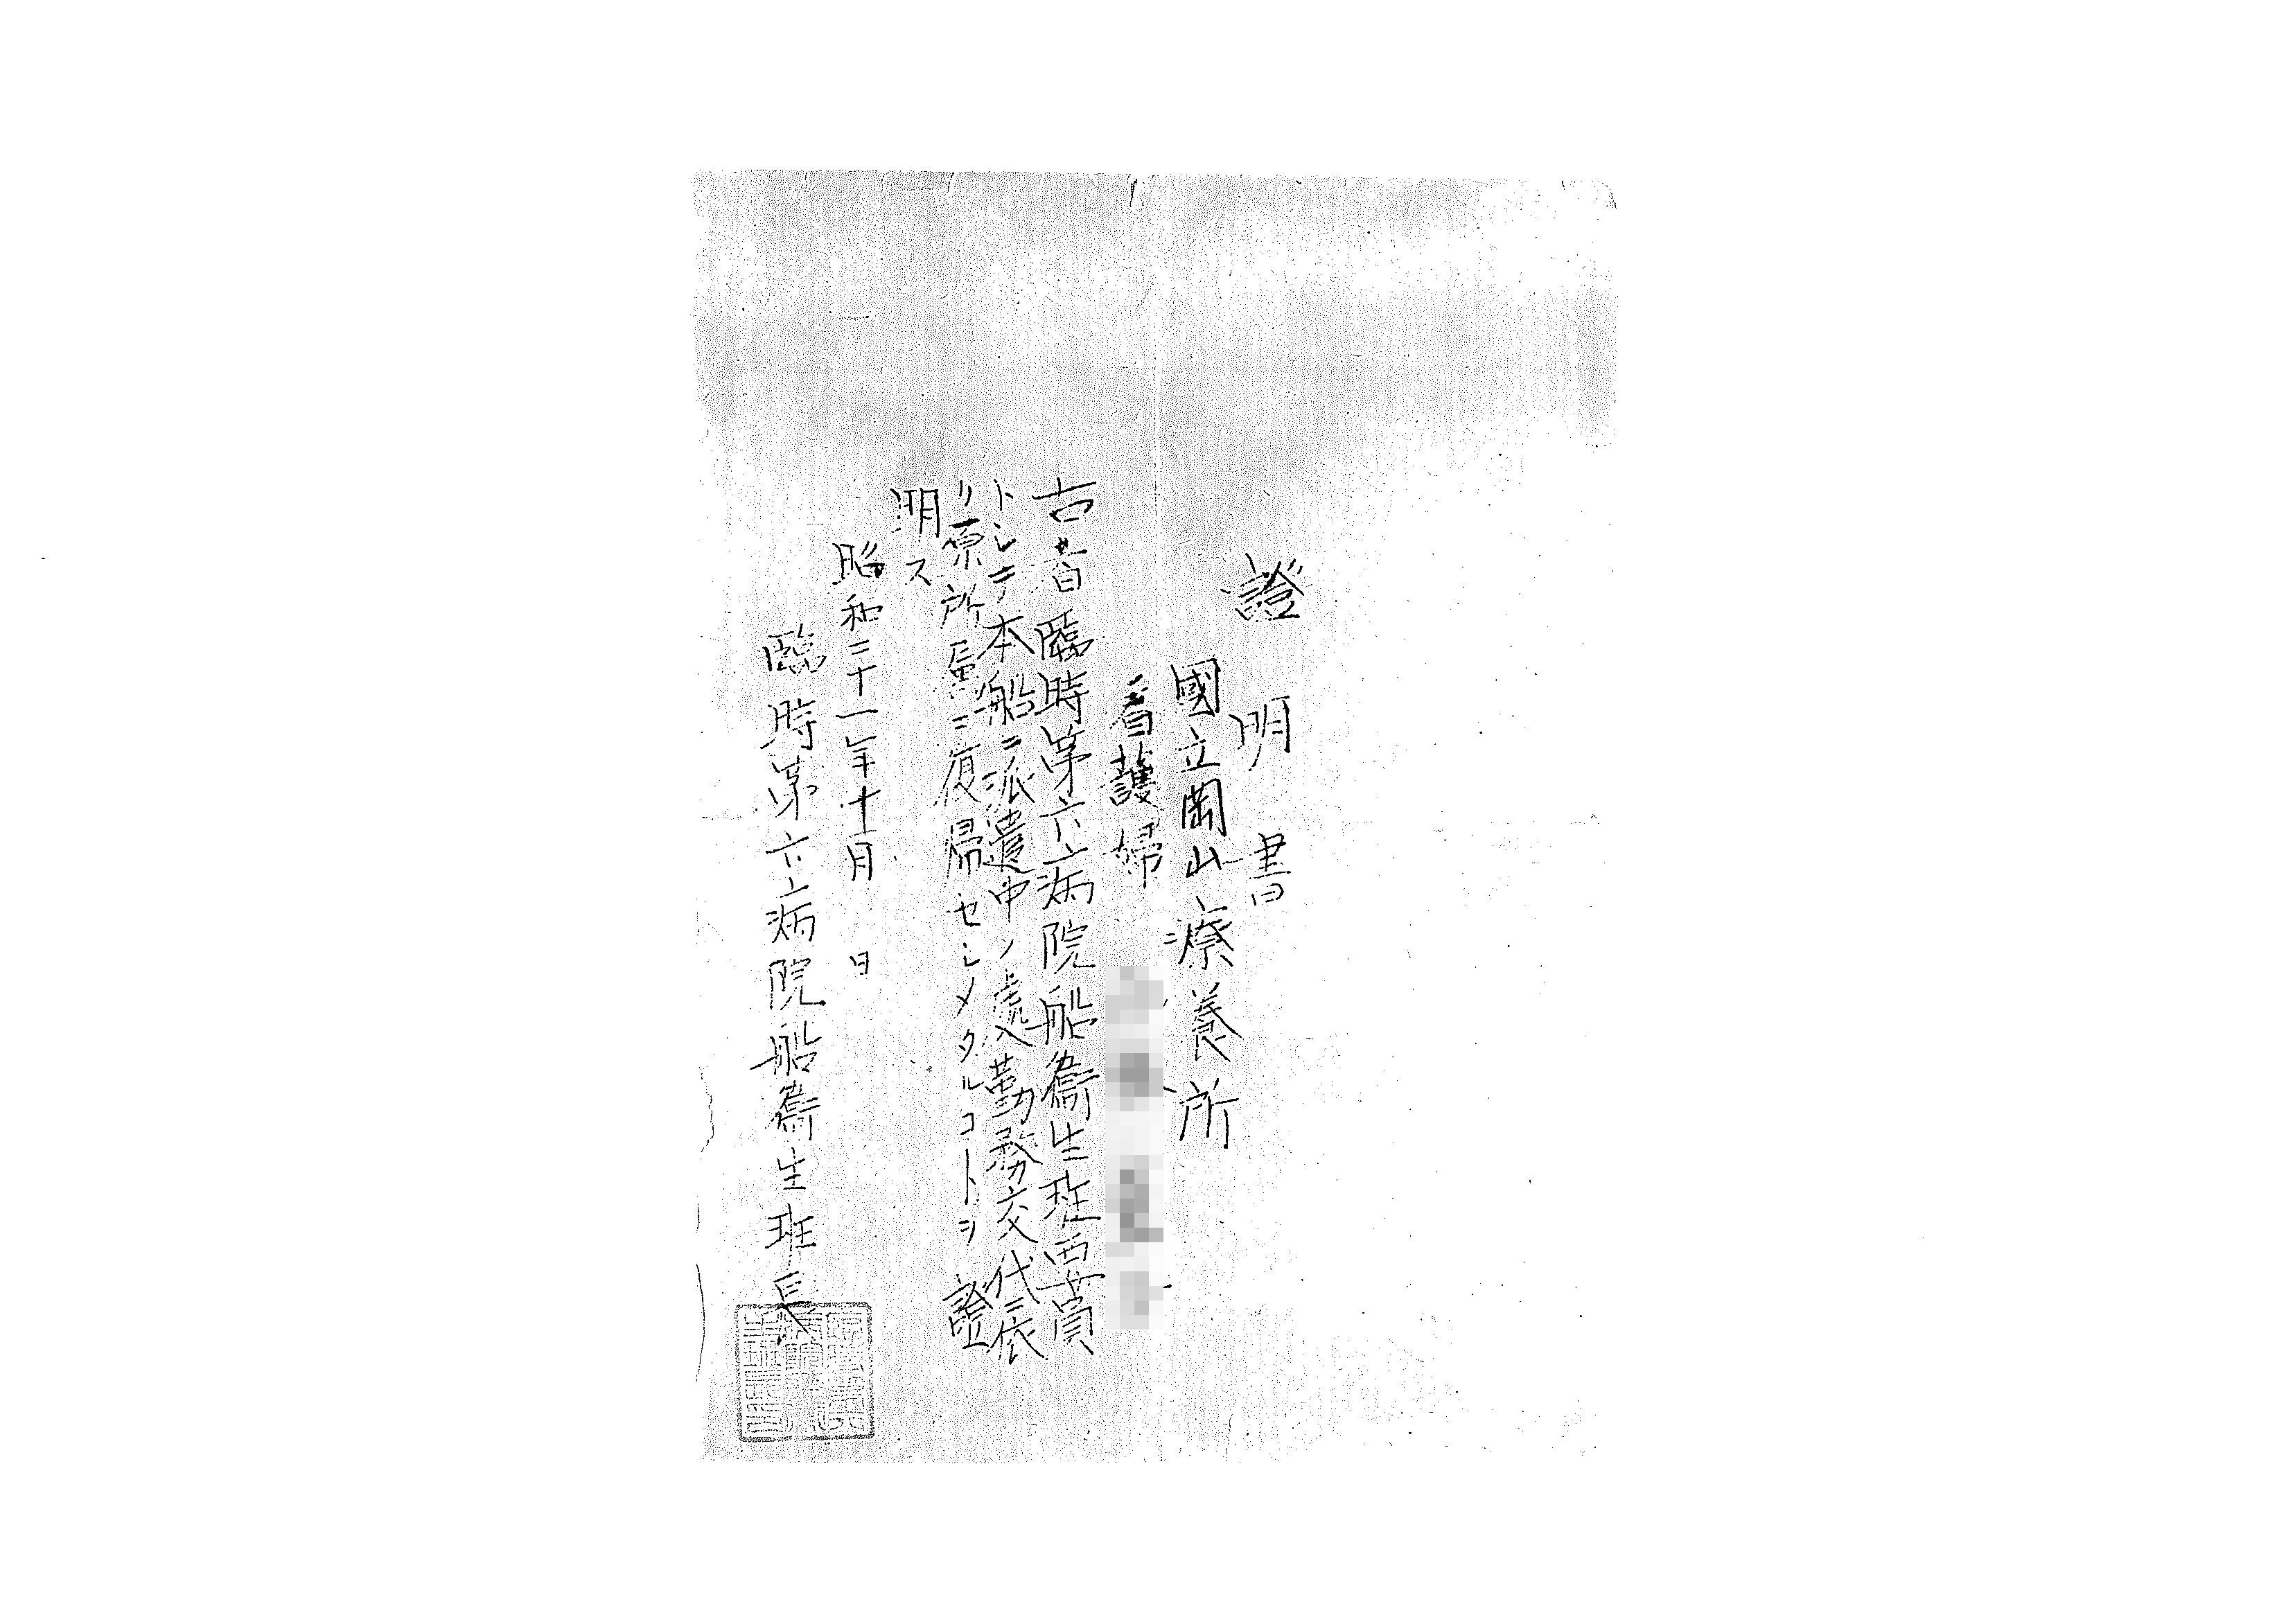 證明書
國立岡山療養所
看護婦
右者臨時第六六病院船衞生班要員
トシテ本船ニ派遣中ノ處勤務交代ニ依
リ原所属ニ復帰セシメタルコトヲ證
明ス
昭和二十一年十一月 日
臨時第六六病院船衞生班長